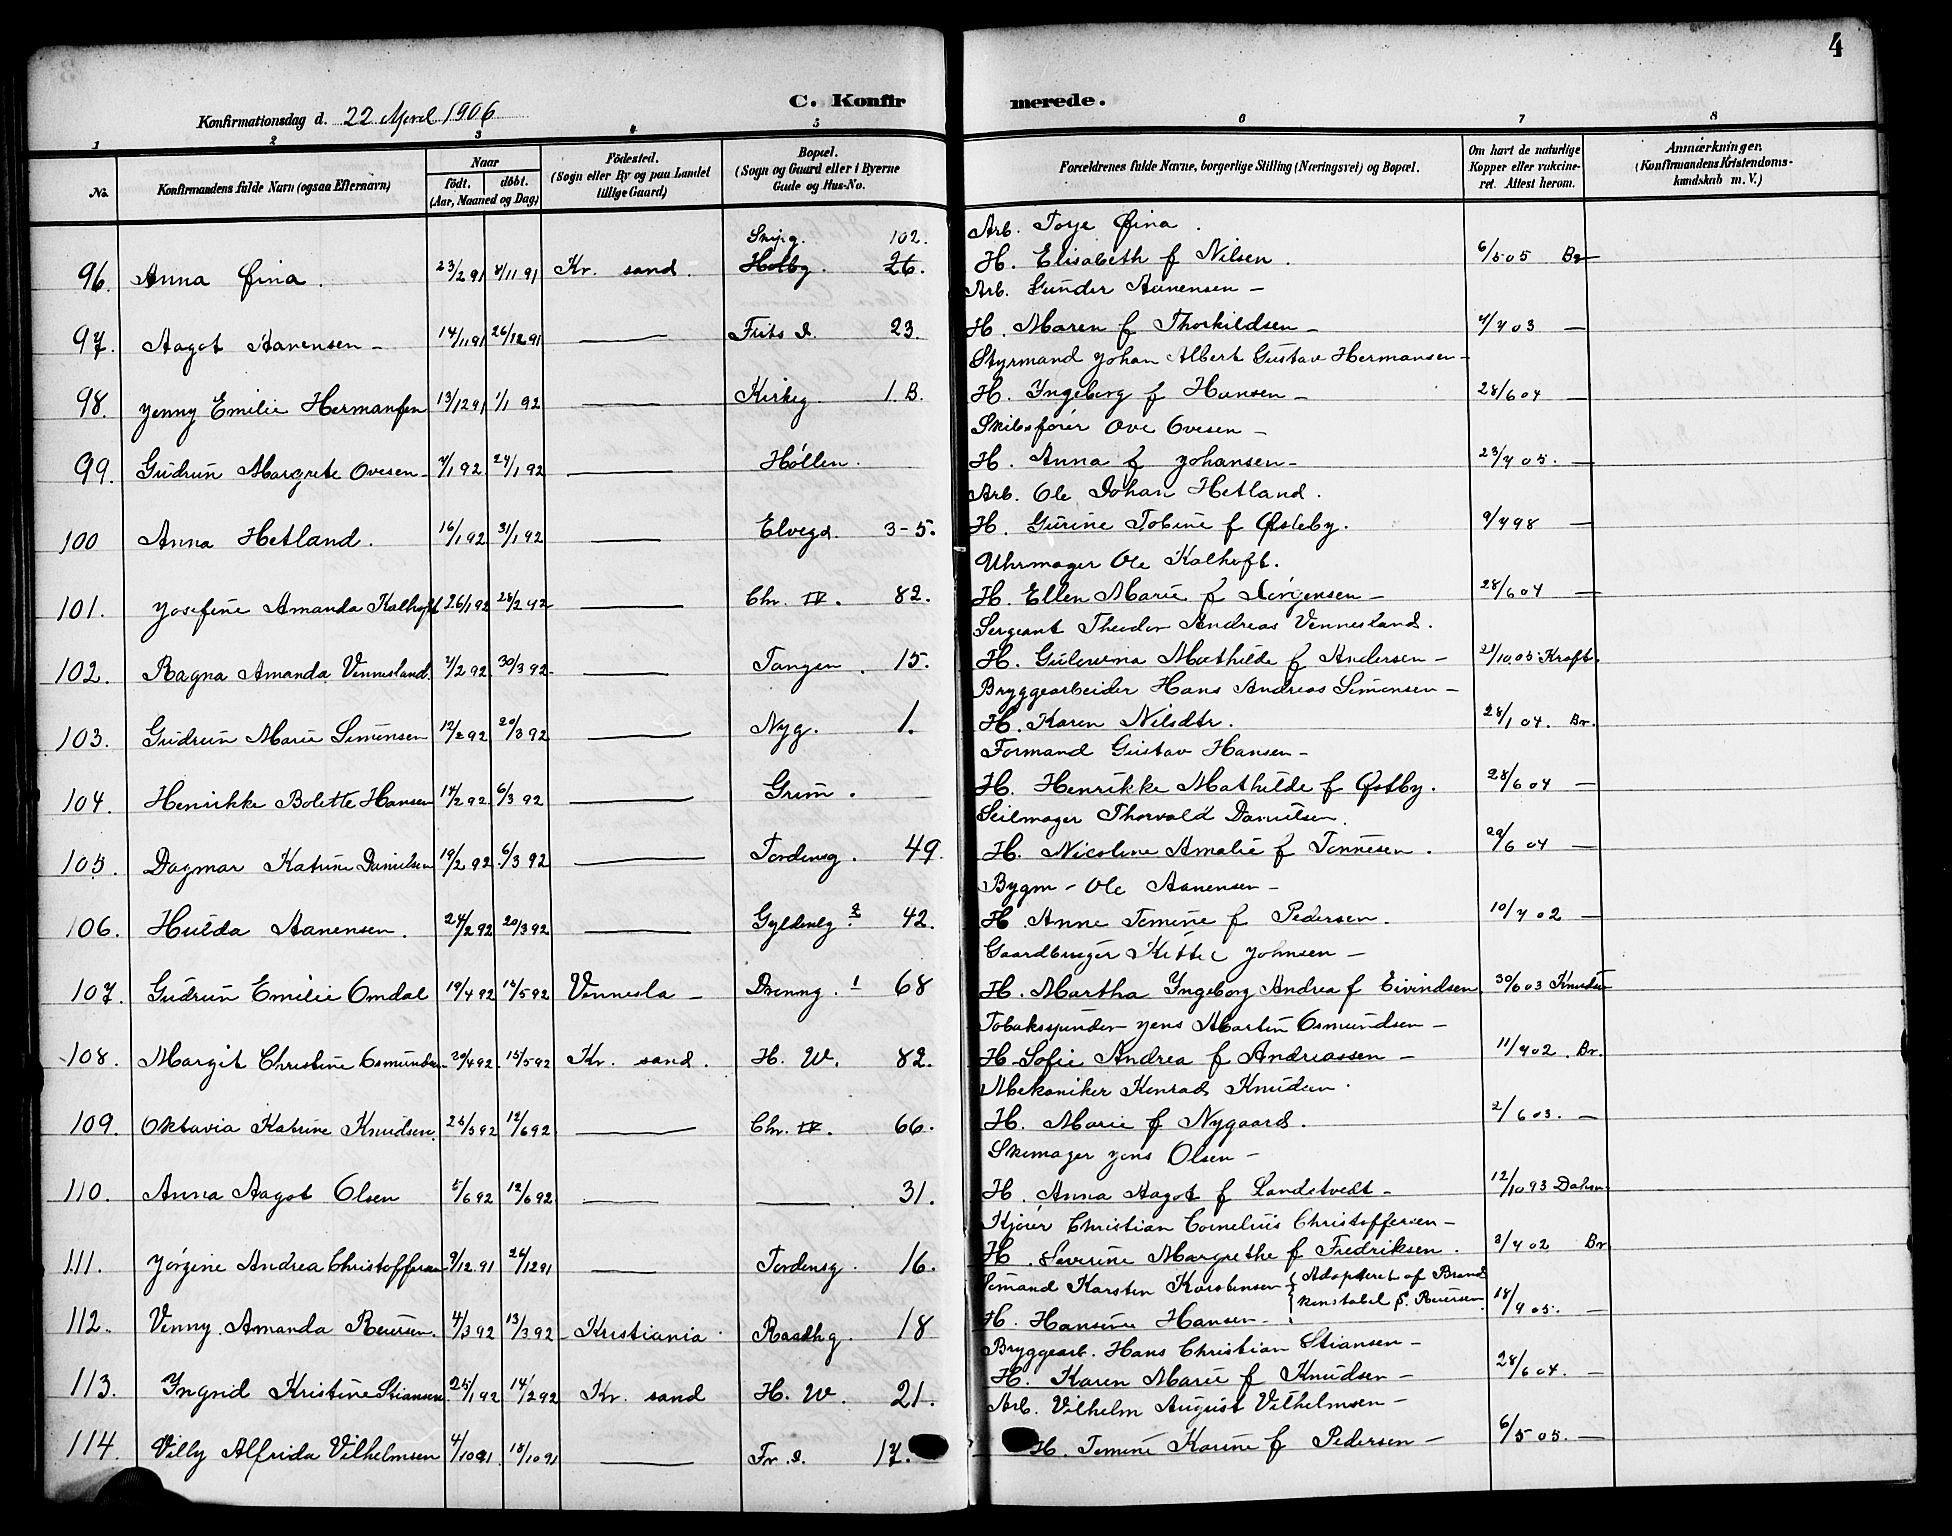 4
C. Konfirmerede.
Konfirmationsdag d. 22 April 1906
1 2 3 4 5 6 7 8
No.
Konfirmandens fulde Navn (ogsaa Efternavn)
Naar
født. døbt.
(Aar, Maaned og Dag)
Fødested.
(Sogn eller By og paa Landet
tillige Gaard)
Bopæl.
(Sogn og Gaard eller i Byerne
Gade og Hus-No.
Forældrenes fulde Navne, borgerlige Stilling (Næringsvei) og Bopæl.
Om havt de naturlige
Kopper eller vakcine-
ret. Attest herom.
Anmærkninger.
(Konfirmandens Kristendoms-
kundskab m. V.)
Skipg. 102. Arb. Torje Øina.
96. Anna Øina. 23/2 91 4/11 91 Kr. sand. Holbg. 26. H. Elisabeth f Nilsen. 6/5 05 Br
Arb. Gunder Aanensen —
97. Aagot Aanensen — 14/11 91 26/12 91 — Frits d. 23. H. Maren f Thorkildsen — 4/4 03 —
Styrmand Johan Albert Gustav Hermansen —
98. Jenny Emilie Hermansen 13/12 91 1/1 92 — Kirkeg. 1 B. H. Ingeborg f Hansen — 28/6 04 —
Skibsfører Ove Ovesen —
99. Gudrun Margrete Ovesen — 4/1 92 24/1 92 — Høllen. H. Anna f Johansen — 23/4 05. —
Arb. Ole Johan Hetland.
100 Anna Hetland. 16/1 92 31/1 92 — Elvegd. 3-5. H. Gurine Tobine f Østeby. 9/4 98 —
Uhrmager Ole Kalhoft.
101. Josefine Amanda Kalhoft 26/1 92 28/2 92 — Chr. IV. 82. H. Ellen Marie f Jørgensen — 28/6 04 —
Sergeant Theodor Andreas Vennesland.
102. Ragna Amanda Vennesland. 2/2 92 30/3 92 — Tangen. 15. H. Gulowina Mathilde f Andersen — 21/10 05 Kraft.
Bryggearbeider Hans Andreas Simonsen —
103. Gudrun Marie Simonsen 12/2 92 20/3 92 — Nyg. 1. H. Karen Nilsdtr. 28/1 04. Br.
Formand Gustav Hansen —
104. Henrikke Bolette Hansen 14/2 92 6/3 92 — Grim. — H. Henrikke Mathilde f Østby. 28/6 04 —
Seilmager Thorvald Danielsen.
105. Dagmar Katrine Danielsen 19/2 92. 6/3 92 — Tordensg. 49. H. Nicoline Amalie f Tønnesen. 29/6 04 —
Bygm - Ole Aanensen —
106. Hulda Aanensen. 24/2 92 20/3 92 — Gyldenlg. 42. H. Anne Temine f Pedersen. 10/4 02 —
Gaardbruger Kittel Johnsen —
107. Gudrun Emilie Omdal 19/4 92 15/5 92 Vennesla — Drenng. 1 68 H. Martha Ingeborg Andrea f Eivindsen 30/6 03 Knudsen
Tobaksspinder Jens Martin Osmundsen —
108. Margit Christine Osmundsen 20/4 92 15/5 92 Kr. sand. H. W. 82. H. Sofie Andrea f Andreassen — 11/4 02. Br.
Mekaniker Konrad Knudsen.
109. Oktavia Katrine Knudsen. 25/3 92 12/6 92 — Chr. IV. 66. H. Marie f Nygaard. 2/6 03. —
Skomager Jens Olsen —
110. Anna Aagot Olsen 5/6 92 12/6 92 — — 31. H. Anna Aagot f Landstvedt — 12/10 93 Dahm
Kjører Christian Cornelius Christoffersen —
111. Jørgine Andrea Christoffersen 9/12 91 26/12 91 — Tordensg. 16. H. Severine Margrethe f Fredriksen. 3/4 02 Br
Sømand Karsten Karstensen { Adopteret af Brand
konstabel S. Reiersen
112. Venny Amanda Reiersen. 4/3 92 13/3 92 Kristiania. Raadhg. 18 H. Hansine Hansen — 18/9 05. —
Bryggearb. Hans Christian Stiansen —
113. Yngrid Kristine Stiansen 25/1 92 14/2 92 Kr. sand H. W. 21. H. Karen Marie f Knudsen — 28/6 04. —
Arb. Vilhelm August Vilhelmsen —
114. Villy Alfrida Vilhelmsen 4/10 91 18/10 91 — Fr. d. 17. H. Temine Karine f Pedersen — 6/5 05. —